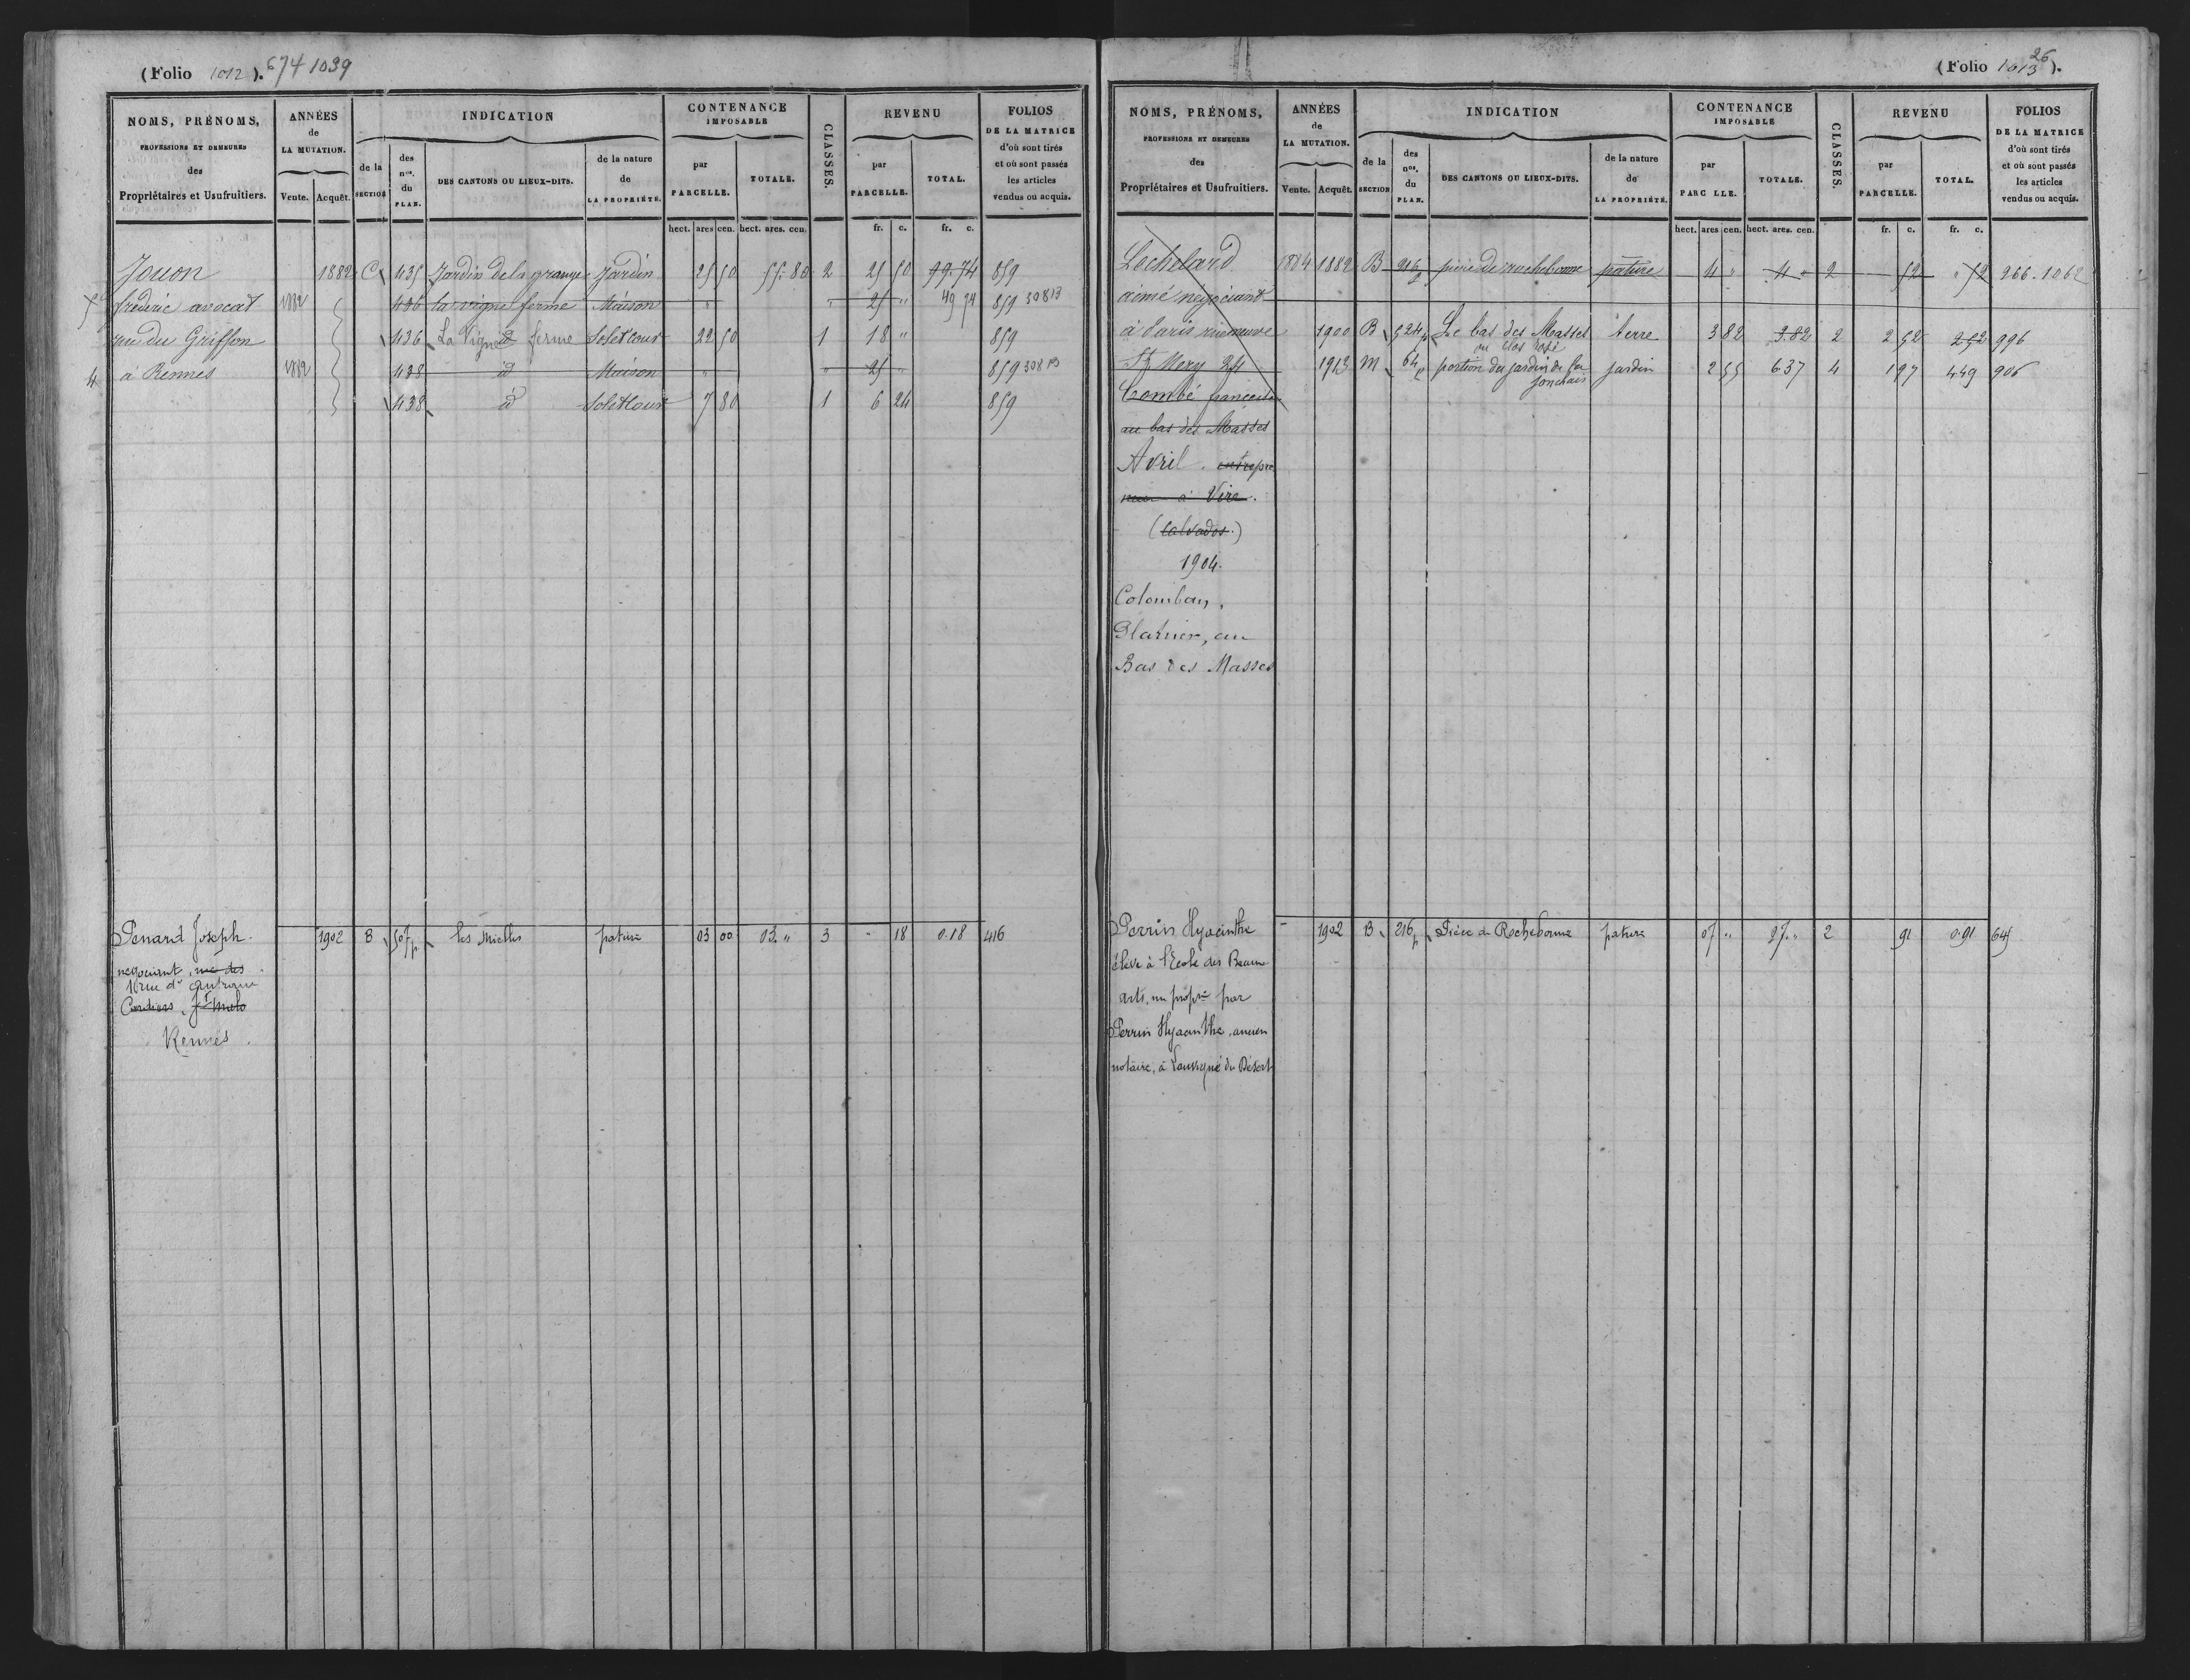 (Folio 1012). 674 1039
NOMS, PRÉNOMS, PROFESSIONS ET DEMEURES des Propriétaires et Usufruitiers.
ANNÉES de LA MUTATION. Vente. Acquêt.
INDICATION
de la SECTION
des nos. du PLAN.
DES CANTONS OU LIEUX-DITS.
de la nature de LA PROPRIÉTÉ.
CONTENANCE IMPOSABLE
par PARCELLE. TOTALE.
CLASSES.
REVENU
par PARCELLE. TOTAL.
FOLIOS DE LA MATRICE d'où sont tirés et où sont passés les articles vendus ou acquis.
hect. ares cen. hect. ares. cen. fr. c. fr. c.
Jouon 1882 C 435 Jardin de la grange Jardin 25 50 55.80 2 25 50 99.74 859
frédéric avocat 1882 436 la vigne ferme Maison " " 25 " 49 74 859 30813
rue du Griffon 436 La Vigne ferme Sol et cour 22 50 1 18 " 859
à Rennes 1882 438 id Maison " " 25 " 859 30813
438 id Sol et cour 7 80 1 6 24 859
Penard Joseph 1902 B 507p les Mielles pature 03 00 03. " 3 " 18 0.18 416
négociant, rue des
10 rue d'Antrain
Cordiers, St Malo
Rennes.
(Folio 1013 26).
NOMS, PRÉNOMS, PROFESSIONS ET DEMEURES des Propriétaires et Usufruitiers.
ANNÉES de LA MUTATION. Vente. Acquêt.
INDICATION
de la SECTION
des nos. du PLAN.
DES CANTONS OU LIEUX-DITS.
de la nature de LA PROPRIÉTÉ.
CONTENANCE IMPOSABLE
par PARC LLE. TOTALE.
CLASSES.
REVENU
par PARCELLE. TOTAL.
FOLIOS DE LA MATRICE d'où sont tirés et où sont passés les articles vendus ou acquis.
hect. ares cen. hect. ares. cen. fr. c. fr. c.
Lechelard 1884 1882 B 216p pièce de rochebonne pature 4 " 4 " 2 52 " 52 266.1062
aimé négociant
à Paris rue neuve 1900 B 524p Le bas des Masses terre 3 82 3.82 2 2 52 2 52 996
ou clos
St Mery 34 1913 M 64p portion du jardin de la jonchais jardin 2 55 6 37 4 1 97 4 49 906
Combé
au bas des Masses
Avril. entrepre
neur à Vire.
(Calvados.)
1904.
Colomban,
Platrier, au
Bas des Masses
Perrin Hyacinthe - 1902 B 216p Pièce de Rochebonne pature 07 " 27. " 2 91 0.91 645
élève à l'Ecole des Beaux
arts, nu propre par
Perrin Hyacinthe, ancien
notaire, à Louvigné du Désert